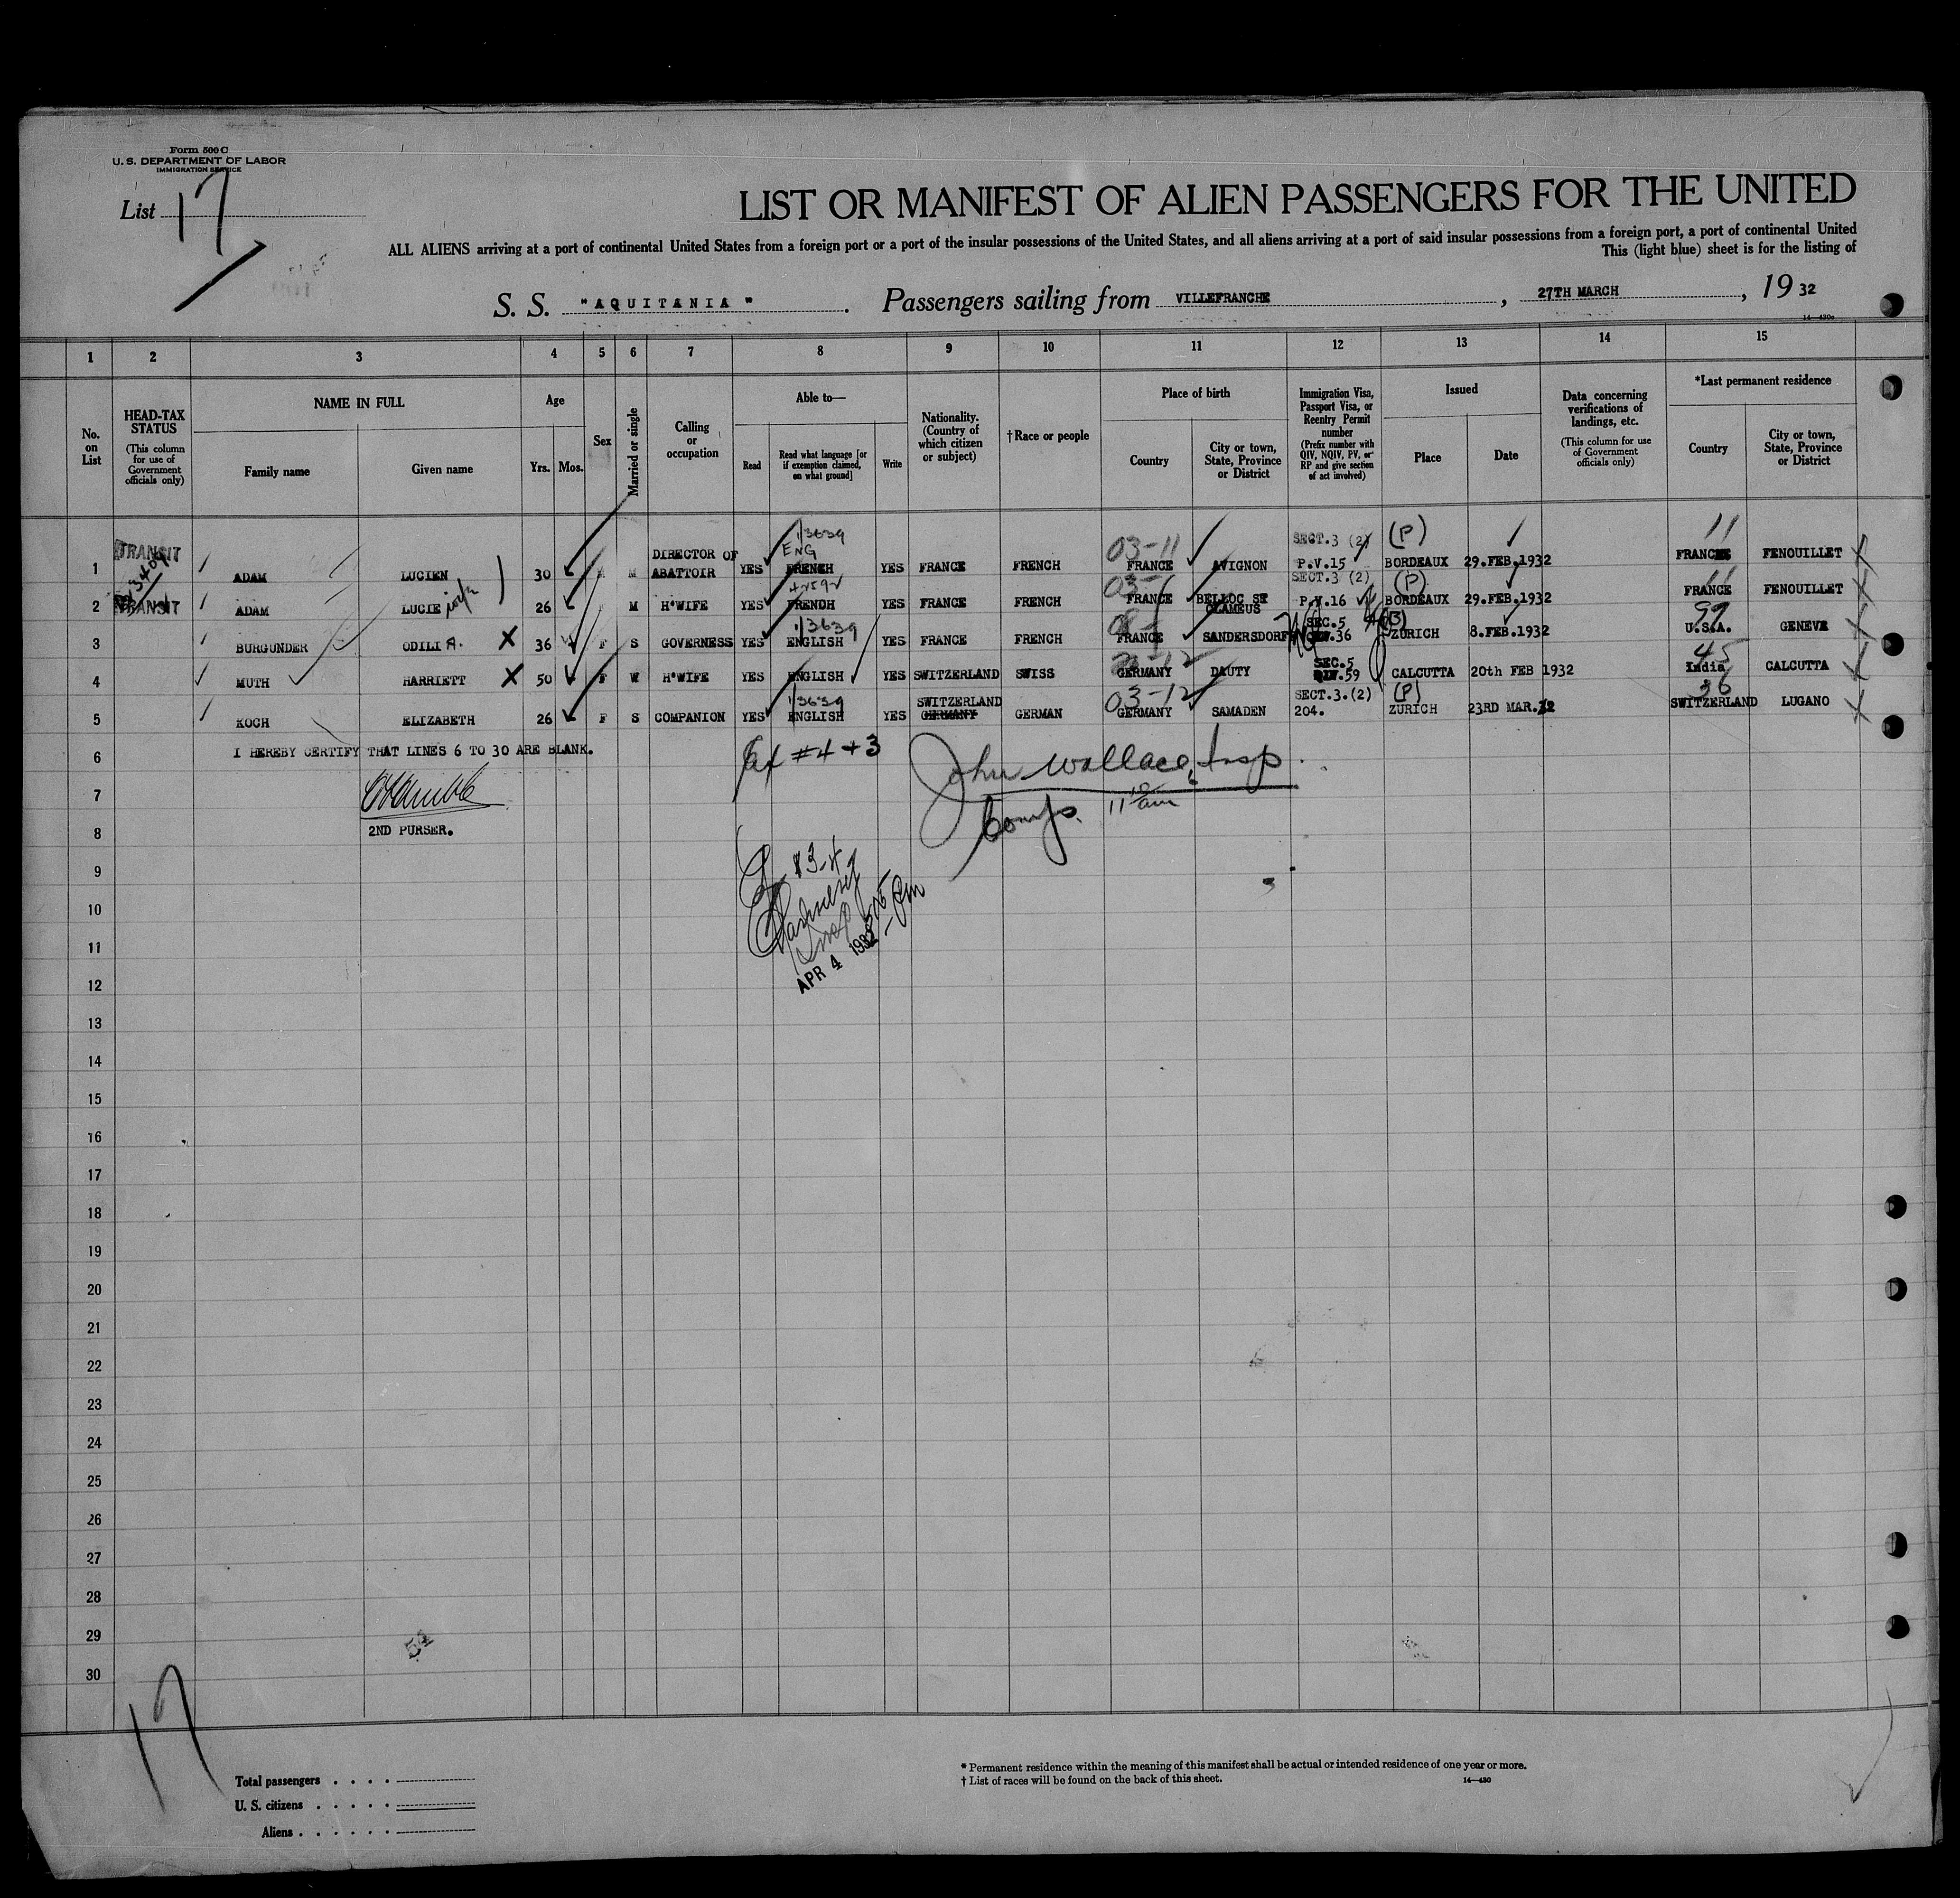 Form 500 C
U. S. DEPARTMENT OF LABOR
IMMIGRATION SERVICE
List 17
LIST OR MANIFEST OF ALIEN PASSENGERS FOR THE UNITED
ALL ALIENS arriving at a port of continental United States from a foreign port or a port of the insular possessions of the United States, and all aliens arriving at a port of said insular possessions from a foreign port, a port of continental United
This (light blue) sheet is for the listing of
S. S. "AQUITANIA". Passengers sailing from VILLEFRANCHE, 27TH MARCH, 19 32
14-430c
1 2 3 4 5 6 7 8 9 10 11 12 13 14 15
No. on List
HEAD-TAX STATUS (This column for use of Government officials only)
NAME IN FULL
Family name
Given name
Age
Yrs. Mos.
Sex
Married or single
Calling or occupation
Able to—
Read
Read what language [or if exemption claimed, on what ground]
Write
Nationality. (Country of which citizen or subject)
† Race or people
Place of birth
Country
City or town, State, Province or District
Immigration Visa, Passport Visa, or Reentry Permit number (Prefix number with QIV, NQIV, PV, or RP and give section of act involved)
Issued
Place
Date
Data concerning verifications of landings, etc. (This column for use of Government officials only)
*Last permanent residence
Country
City or town, State, Province or District
13639 SECT.3 (2) (P) 11
TRANSIT DIRECTOR OF ENG 03-11
1 ADAM LUCIEN 30 M ABATTOIR YES FRENCH YES FRANCE FRENCH FRANCE AVIGNON P.V.15 BORDEAUX 29.FEB.1932 FRANCE FENOUILLET
SECT.3 (2) (P) 11
2 TRANSIT ADAM LUCIE 26 M H'WIFE YES FRENCH YES FRANCE FRENCH FRANCE BELLOC ST CLAMEUS P.V.16 BORDEAUX 29.FEB.1932 FRANCE FENOUILLET
13639 SEC.5 99
3 BURGUNDER ODILIA. X 36 F S GOVERNESS YES ENGLISH YES FRANCE FRENCH FRANCE SANDERSDORF .36 ZURICH 8.FEB.1932 U.S.A. GENEVE
SEC.5 45
4 MUTH HARRIETT X 50 F W H'WIFE YES ENGLISH YES SWITZERLAND SWISS GERMANY DAUTY .59 CALCUTTA 20th FEB 1932 India CALCUTTA
13639 SWITZERLAND 03-12 SECT.3.(2) (P) 36
5 KOCH ELIZABETH 26 F S COMPANION YES ENGLISH YES GERMANY GERMAN GERMANY SAMADEN 204. ZURICH 23RD MAR.32 SWITZERLAND LUGANO
6 I HEREBY CERTIFY THAT LINES 6 TO 30 ARE BLANK. #4 + 3 John Wallace, Insp.
7
11 10 am
8 2ND PURSER.
9
10
11
APR 4 1932
12
13
14
15
16
17
18
19
20
21
22
23
24
25
26
27
28
29
30
17
Total passengers
U. S. citizens
Aliens
* Permanent residence within the meaning of this manifest shall be actual or intended residence of one year or more.
† List of races will be found on the back of this sheet.
14-430